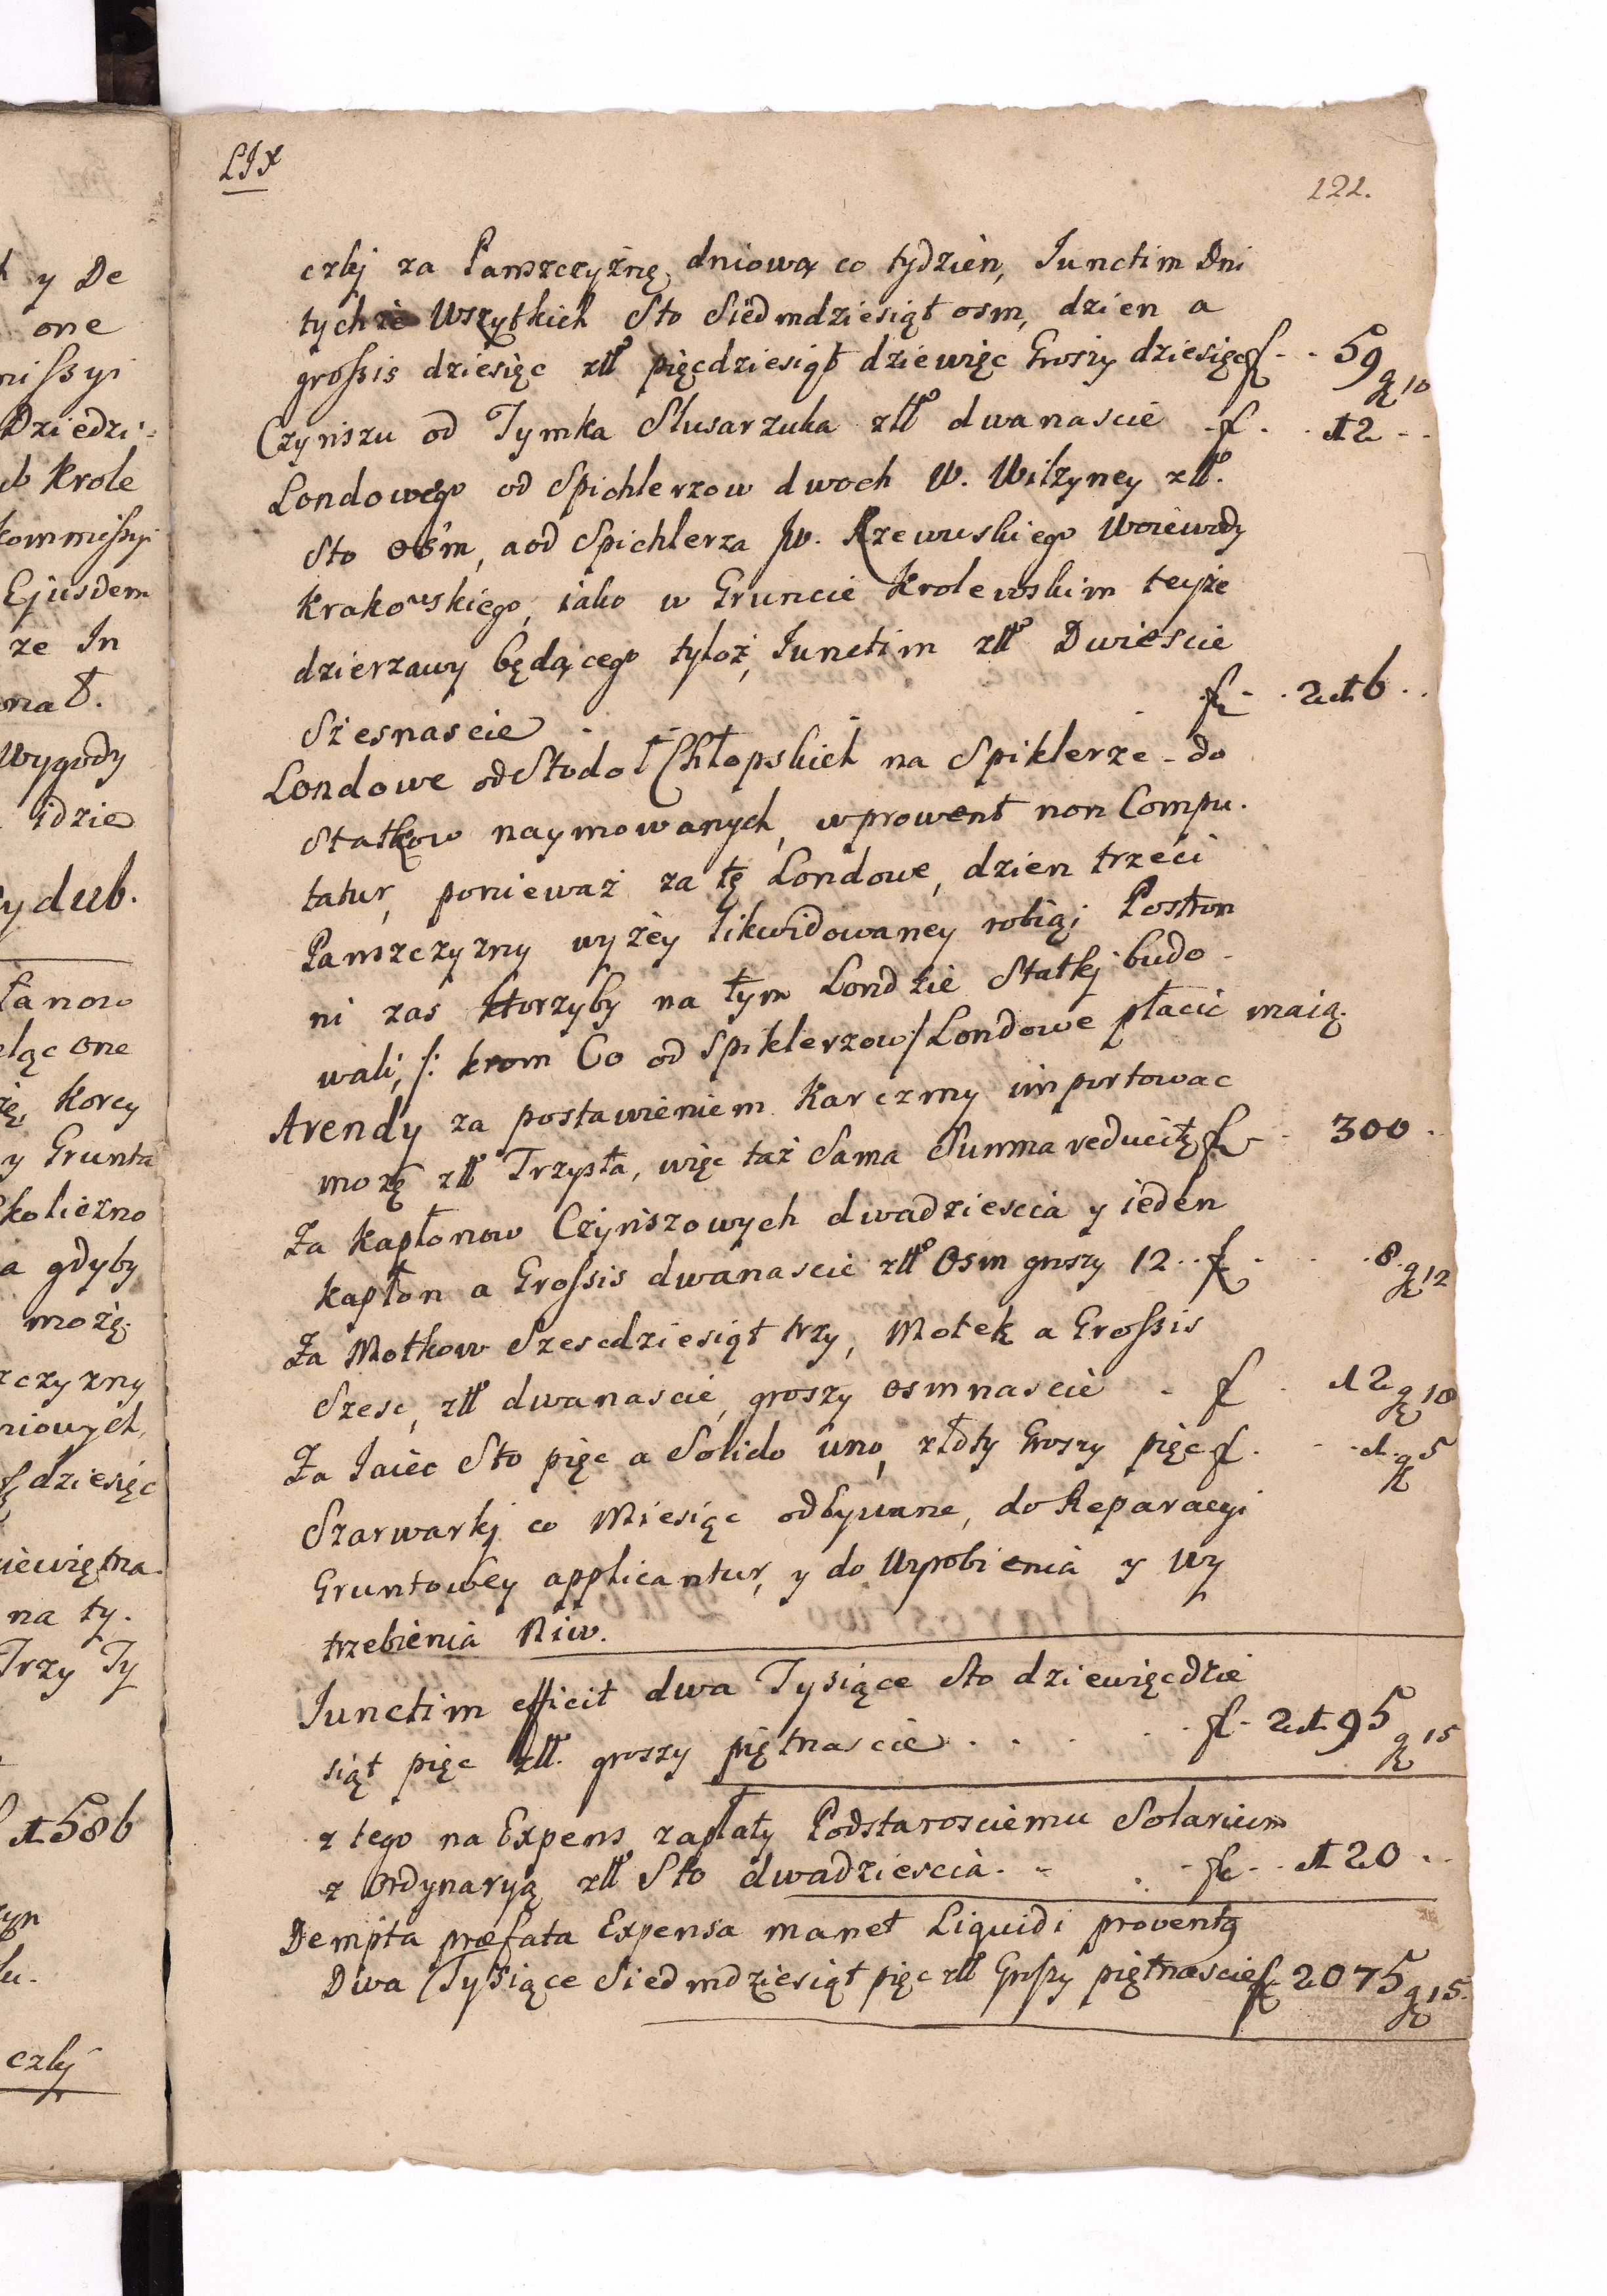 LIX
121.
człej za Panszczyznę dniową co tydzien, Junctim Dni
tychże Wszytkich Sto Siedmdziesiąt osm, dzien a
grossis dziesięc złł pięcdziesiąt dziewięc Groszy dziesięc f - - 59 g 10
Czynszu od Tymka Slusarzuka złł dwanascie f - - 12 - -
Londowego od Spichlerzow dwoch W. Wilzyney złł.
Sto ośm, a od Spichlerza Jw. Rzewuskiego Woiewody
Krakowskiego, iako w Gruncie Krolewskim teyże
dzierzawy będącego tyloż, Junctim złł Dwiescie
Szesnascie - - - f - - 216 - -
Londowe od Stodoł Chłopskich na Spiklerze - do
Statkow naymowanych, w prowent non Compu.
tatur, ponieważ za tę Londowe, dzien trzeci
Panszczyzny wyżey likwidowaney robią; Postron
ni zas ktorzyby na tym Londzie Statkj budo -
wali, /: krom Co od Spiklerzow/ Londowe płacic maią.
Arendy za postawieniem Karczmy importowac
możę złł Trzysta, więc taż Sama Summa reducitę f - - 300 -
Za kapłonow Czynszowych dwadziescia y ieden
kapłon a Grossis dwanascie złł Osm groszy 12 .. f - - - 8 g 12
Za Motkow Szescdziesiąt trzy, Motek a Grossis
Szesc, złł dwanascie, groszy osmnascie - f - 12 g 18
Za Jaiec Sto pięc a Solido uno, złoty Groszy pięc f - - 1 g 5
Szarwarkj co Miesiąc odbywane, do Reparacyi
Gruntowey applicantur, y do Wyrobienia y wy
trzebienia Niw.
Junctim efficit dwa Tysiące Sto dziewięcdzie
siąt pięc złł. groszy piętnascie - - - f - 2195 g 15
z tego na Expens zapłaty Podstarosciemu Solarium
z Ordynaryą złł Sto dwadziescia - - - f - - 120 - -
Dempta præfata Expensa manet Liquidi proventq
Dwa Tysiące Siedmdziesiąt pięc złł Groszy piętnascie f 2075 g 15.